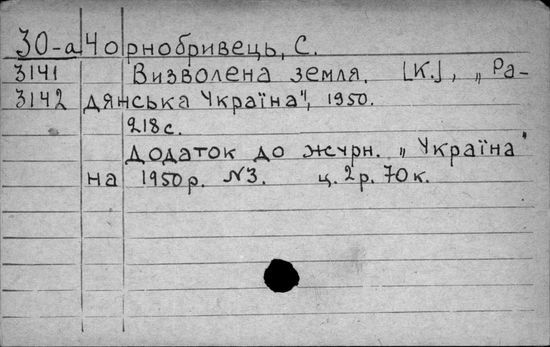 30-а Чорнобривець, С.
3141 Визволена земля. [К.], „Ра-
3142 дянська Україна", 1950.
218с.
Додаток до журн. „Україна"
на 1950р. №3. ц. 2р. 70к.